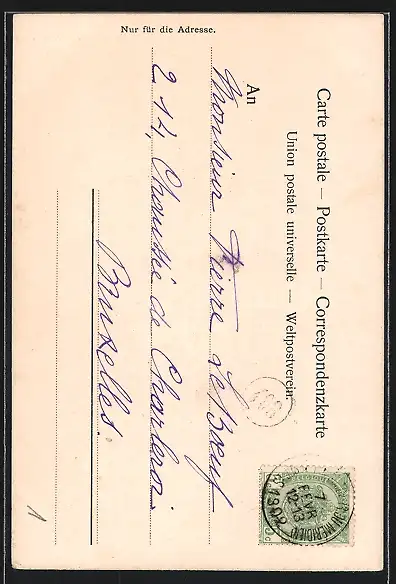 Carte postale — Postkarte — Correspondenzkarte
Union postale universelle — Weltpostverein.
An
Monsieur Pierre LeBœuf
214, Chaussée de Charleroi
Bruxelles.
Nur für die Adresse.
7
FEVR
12-13
1902
1